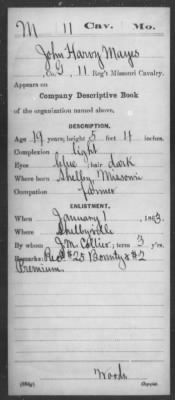 M 11 Cav. Mo.
John Harvy Mayes
Co. G, 11 Reg't Missouri Cavalry.
Appears on
Company Descriptive Book
of the organization named above.
DESCRIPTION.
Age 19 years; height 5 feet 4 inches.
Complexion light
Eyes blue; hair dark
Where born Shelby Missouri
Occupation farmer
ENLISTMENT.
When January 1, 1863.
Where Shelbyville
By whom J. M. Collier; term 3 y'rs.
Remarks: Recd $25 Bounty & $2
Premium.
Woods
Copyist.